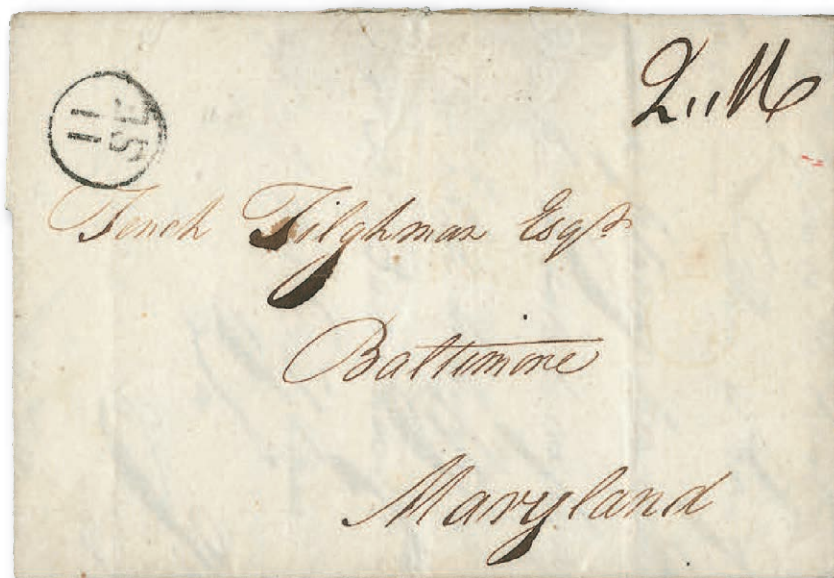 2,,16
11
Tench Tilghman Esqr.
Baltimore
Maryland